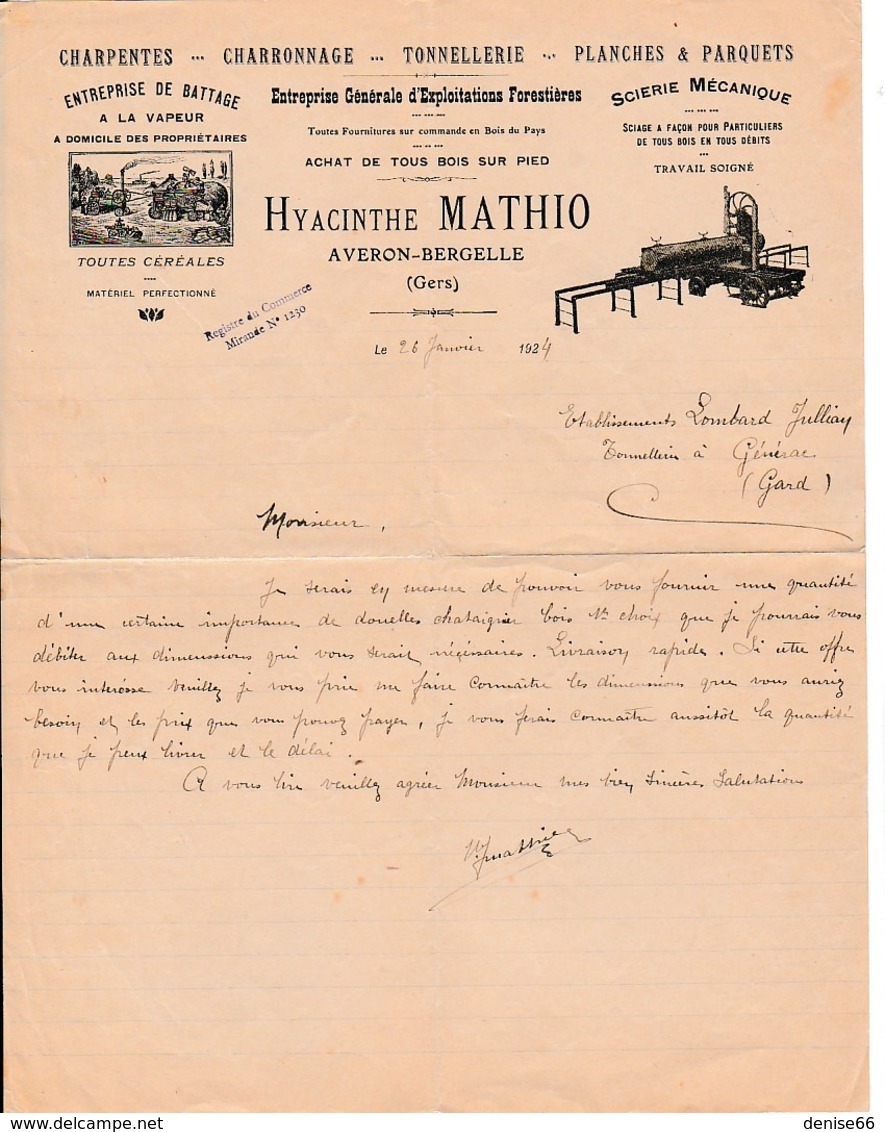 CHARPENTES ... CHARRONNAGE ... TONNELLERIE ... PLANCHES & PARQUETS
ENTREPRISE DE BATTAGE
A LA VAPEUR
A DOMICILE DES PROPRIÉTAIRES
TOUTES CÉRÉALES
MATÉRIEL PERFECTIONNÉ
Entreprise Générale d'Exploitations Forestières
Toutes Fournitures sur commande en Bois du Pays
ACHAT DE TOUS BOIS SUR PIED
HYACINTHE MATHIO
AVERON-BERGELLE
(Gers)
SCIERIE MÉCANIQUE
SCIAGE A FAÇON POUR PARTICULIERS
DE TOUS BOIS EN TOUS DÉBITS
TRAVAIL SOIGNÉ
Registre du Commerce
Mirande N° 1230
Le 26 Janvier 1924
Etablissements Lombard Julliay
Tonnellerie à Générac
(Gard)
Monsieur,
Je serais en mesure de pouvoir vous fournir une quantité
d'une certaine importance de douelles chataignier bois 1er choix que je pourrais vous
débiter aux dimenssions qui vous serait néçéssaires. Livraison rapide. Si cette offre
vous intéresse veuillez je vous prie me faire connaître les dimensions que vous auriez
besoin et les prix que vous pouvez payer, je vous ferais connaître aussitôt la quantité
que je peux livrer et le délai.
A vous lire veuillez agréer Monsieur mes bien sincères salutations
H. Mathio
denise66